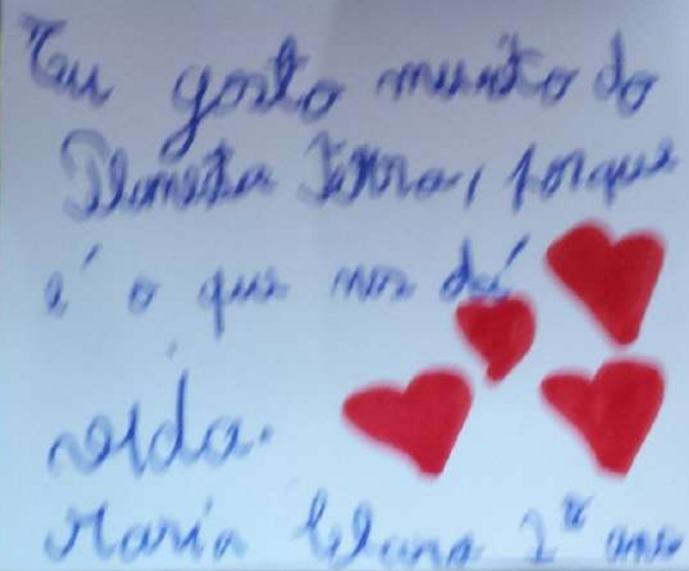 Eu gosto muito do
Planeta Terra, porque
é o que nos dá
vida.
Maria Clara 2º ano